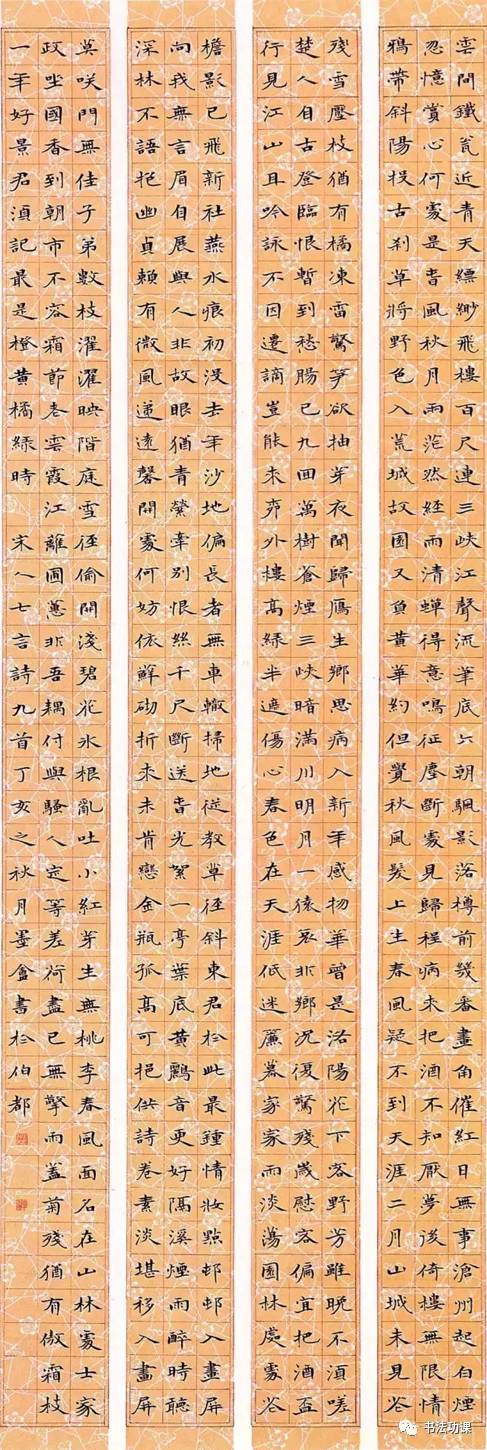 雲間鐵瓮近青天縹緲飛樓百尺連三峽江聲流筆底六朝颿影落樽前幾番畫角催紅日無事滄州起白煙
忽憶賞心何處是春風秋月兩茫然經雨清蟬得意鳴征塵斷處見歸程病來把酒不知厭夢後倚樓無限情
鴉帶斜陽投古刹草將野色入荒城故園又負黃華約但覺秋風髮上生春風疑不到天涯二月山城未見花
殘雪壓枝猶有橘凍雷驚筍欲抽芽夜聞歸鴈生鄉思病入新年感物華曾是洛陽花下客野芳雖晚不須嗟
楚人自古登臨恨暫到愁腸已九回萬樹蒼煙三峽暗滿川明月一猿哀非鄉況復驚殘歲慰客偏宜把酒盃
行見江山且吟詠不因遷謫豈能來外樓高綠半遮傷心春色在天涯低迷簾幕家家雨淡蕩園林處處花
檐影已飛新社燕水痕初沒去年沙地偏長者無車轍掃地從教草徑斜東君於此最鍾情妝點邨邨入畫屏
向我無言眉自展與人非故眼猶青縈牽別恨絲千尺斷送春光絮一亭葉底黃鸝音更好隔溪煙雨醉時聽
深林不語抱幽貞賴有微風遞遠馨開處何妨依蘚砌折來未肯戀金瓶孤高可挹供詩卷素淡堪移入畫屏
莫咲門無佳子弟數枝濯濯映階庭雪徑偷開淺碧花冰根亂吐小紅芽生無桃李春風面名在山林處士家
政坐國香到朝市不容霜節老雲霞江離圃蕙非吾耦付與騷人定等差荷盡已無擎雨蓋菊殘猶有傲霜枝
一年好景君須記最是橙黃橘綠時 宋人七言詩九首丁亥之秋月墨盦書於伯都
书法功课